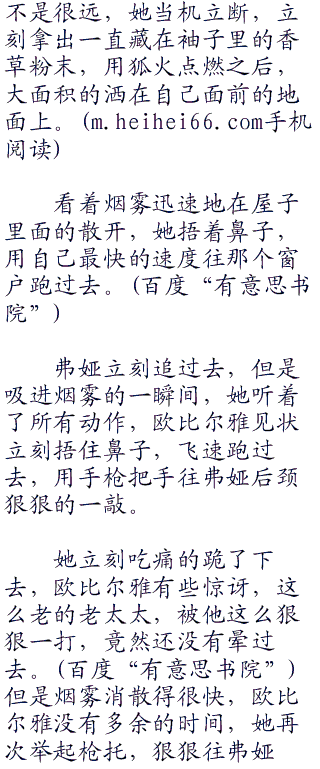 不是很远，她当机立断，立
刻拿出一直藏在袖子里的香
草粉末，用狐火点燃之后，
大面积的洒在自己面前的地
面上。(m.heihei66.com手机
阅读)
看着烟雾迅速地在屋子
里面的散开，她捂着鼻子，
用自己最快的速度往那个窗
户跑过去。(百度“有意思书
院”)
弗娅立刻追过去，但是
吸进烟雾的一瞬间，她听着
了所有动作，欧比尔雅见状
立刻捂住鼻子，飞速跑过
去，用手枪把手往弗娅后颈
狠狠的一敲。
她立刻吃痛的跪了下
去，欧比尔雅有些惊讶，这
么老的老太太，被他这么狠
狠一打，竟然还没有晕过
去。(百度“有意思书院”)
但是烟雾消散得很快，欧比
尔雅没有多余的时间，她再
次举起枪托，狠狠往弗娅